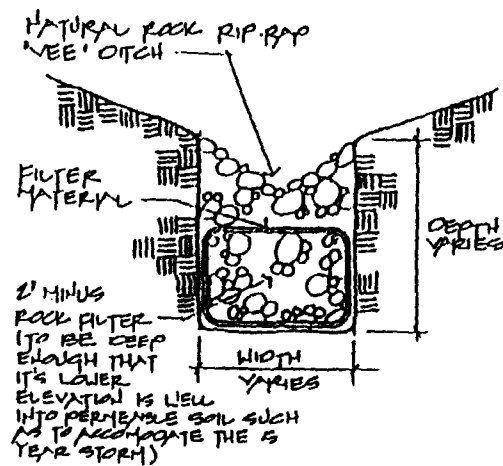 NATURAL ROCK RIP-RAP
'VEE' DITCH
FILTER
MATERIAL
DEPTH
VARIES
2' MINUS
ROCK FILTER
(TO BE DEEP
ENOUGH THAT
IT'S LOWER
ELEVATION IS WELL
INTO PERMEABLE SOIL SUCH
AS TO ACCOMODATE THE 15
YEAR STORM)
WIDTH
VARIES